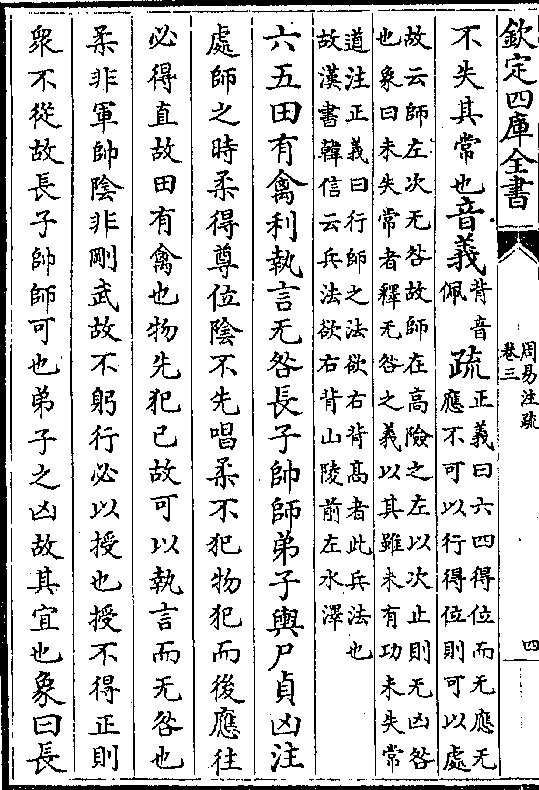 欽定四庫全書
周易注疏
卷三
四
不失其常也音義背音
佩疏正義曰六四得位而无應无
應不可以行得位則可以處
故云師左次无咎故師在高險之左以次止則无凶咎
也象曰未失常者釋无咎之義以其雖未有功未失常
道注正義曰行師之法欲右背高者此兵法也
故漢書韓信云兵法欲右背山陵前左水澤
六五田有禽利執言无咎長子帥師弟子輿尸貞凶注
處師之時柔得尊位陰不先唱柔不犯物犯而後應往
必得直故田有禽也物先犯已故可以執言而无咎也
柔非軍帥陰非剛武故不躬行必以授也授不得正則
衆不從故長子帥師可也弟子之凶故其宜也象曰長